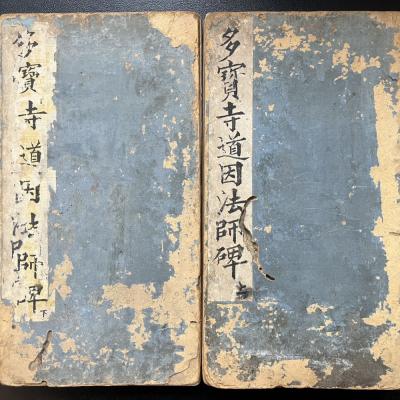 多寶寺道因法師碑
上
多寶寺道因法師碑
下